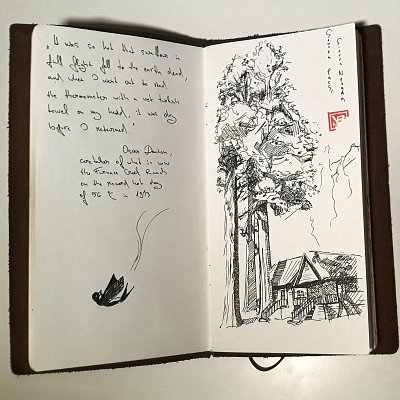 „It was so hot that swallows in
full flight fell to the earth dead,
and when I went out to read
the thermometer with a wet turkish
towel on my head, it was dry
before I returned."
Oscar Denton,
caretaker of what is now
the Furnace Creek Ranch
on the record hot day
of 56 °C in 1913
Sierra Nevada,